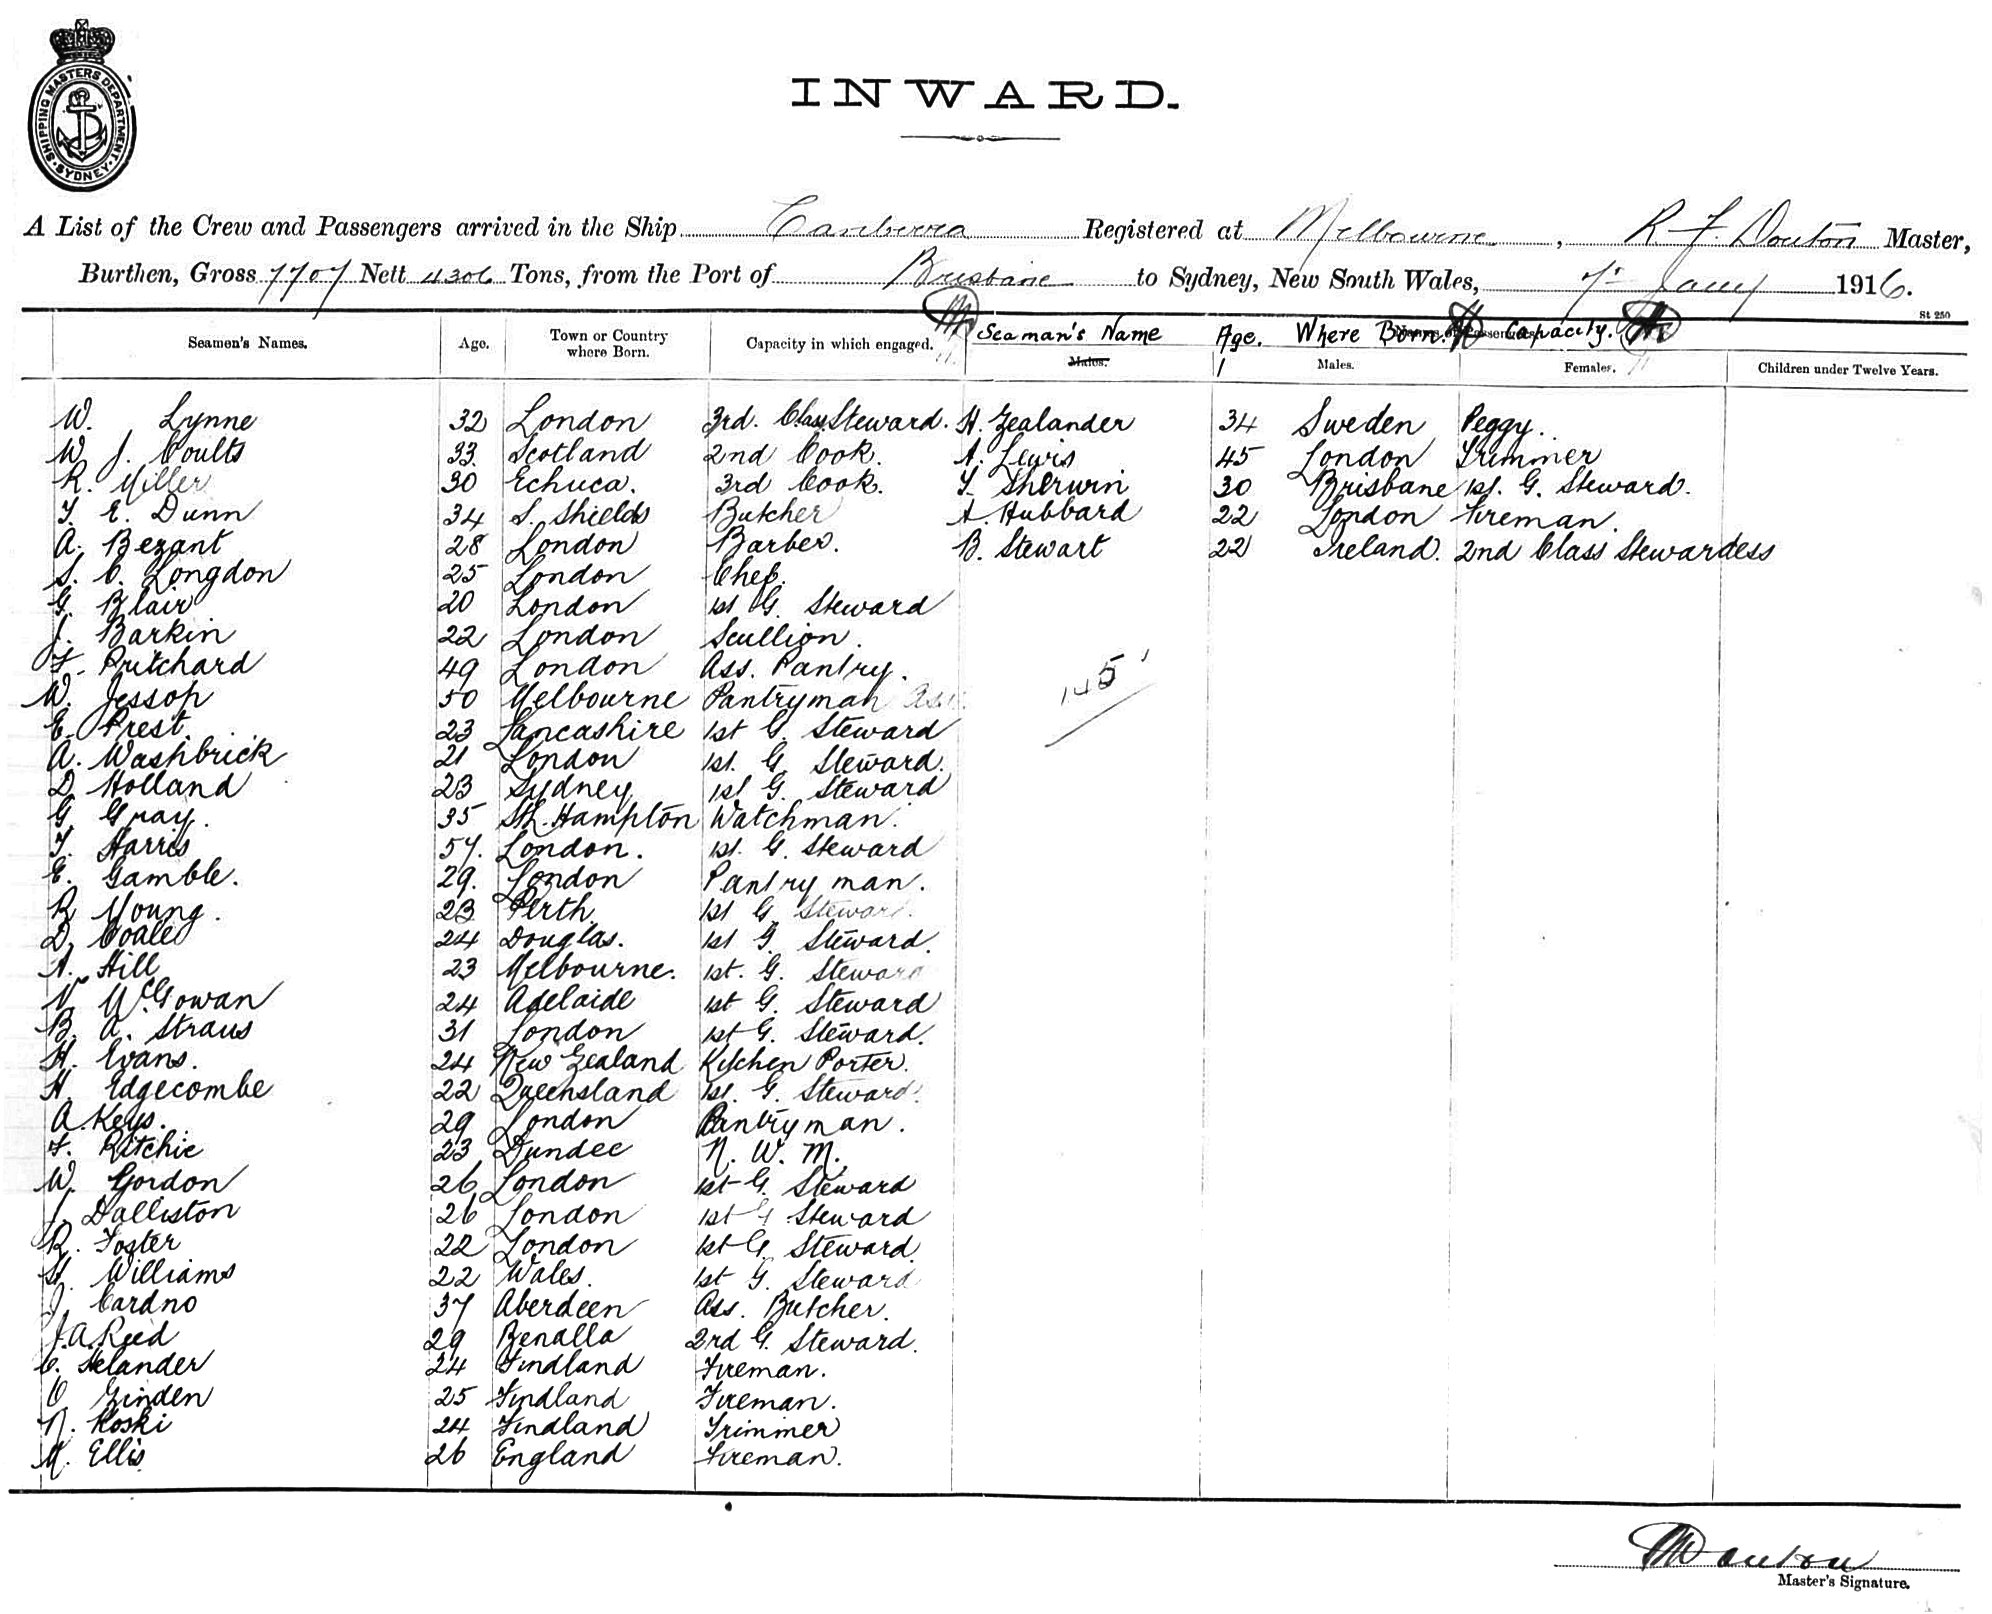 SHIPPING MASTERS DEPARTMENT · SYDNEY ·
INWARD.
A List of the Crew and Passengers arrived in the Ship Canberra Registered at Melbourne, R. F. Douton Master,
Burthen, Gross 7707 Nett 4306 Tons, from the Port of Brisbane to Sydney, New South Wales, 7th Jany 1916.
St 250
Seamen's Names. Age. Town or Country where Born. Capacity in which engaged. Seaman's Name Age. Where Born. Capacity.
Males. Males. Females. Children under Twelve Years.
W. Lynne 32 London 3rd. Class Steward. H. Zealander 34 Sweden Peggy.
W. J. Coults 33. Scotland 2nd Cook. A. Lewis 45 London Trimmer
R. Miller 30 Echuca. 3rd Cook. T. Sherwin 30 Brisbane 1st. G. Steward.
T. E. Dunn 34 S. Shields Butcher A. Hubbard 22 London Fireman.
A. Bezant 28 London Barber. B. Stewart 22 Ireland. 2nd Class Stewardess
S. C. Longdon 25 London Chef.
G. Blair 20 London 1st G. Steward
J. Barkin 22 London Scullion.
F. Pritchard 49 London Ass. Pantry.
W. Jessop 50 Melbourne Pantryman
145
E. Prest. 23 Lancashire 1st G. Steward
A. Washbrick 21 London 1st. G. Steward.
D. Holland 23 Sydney 1st G. Steward
G. Gray. 35 Sth. Hampton Watchman.
T. Harris 57. London. 1st. G. Steward
E. Gamble. 29. London Pantry man.
R. Young. 23 Perth. 1st G. Steward.
D. Coale 24 Douglas. 1st G. Steward.
A. Hill 23 Melbourne. 1st. G. Steward
N. McGowan 24 Adelaide 1st G. Steward
B. A. Straus 31 London 1st G. Steward.
H. Evans. 24 New Zealand Kitchen Porter.
H. Edgecombe 22 Queensland 1st. G. Steward.
A. Keys. 29 London Pantryman.
F. Ritchie 23 Dundee N. W. M.
W. Gordon 26 London 1st G. Steward
J. Dalliston 26 London 1st G Steward
R. Foster 22 London 1st G. Steward.
H. Williams 22 Wales. 1st G. Steward
J. Cardno 37 Aberdeen Ass. Butcher.
J. A. Reed 29 Benalla 2rd G. Steward.
C. Selander 24 Findland Fireman.
O Zinden 25 Findland Fireman.
N. Koski 24 Findland Trimmer
M. Ellis 26 England Fireman.
Douton
Master's Signature.